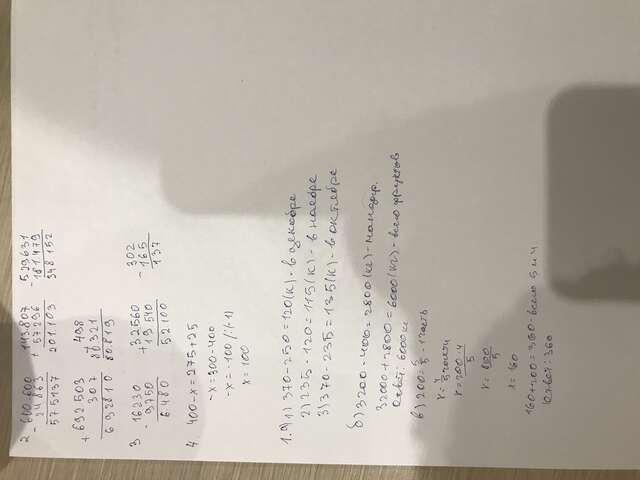 2. 600.600 143.807 529631
- 24863 + 57296 - 181479
575737 201.103 348.152
+ 692503 + 498
307 80321
692810 80.819
3. - 16230 + 32560 - 302
9750 19 540 165
6480 52100 137
4. 400-x=275+25
-x=300-400
-x=-100 /:(-1)
x=100
1. а) 1) 370-250=120(к)-в декабре
2) 235-120=115(к)-в ноябре
3) 370-235=135(к)-в октябре
б) 3200-400=2800(кг)-мандар.
32000+2800=6000(кг)-всего фруктов
Ответ: 6000кг
в) 200=5/5-1часть
x=4/5 части
x=200·4/5
x=800/5
x=160
160+200=360-всего 5 и 4
Ответ: 360